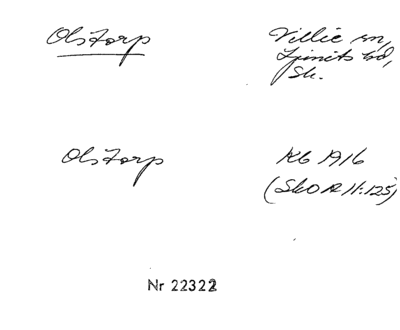 Olstorp
Villie sn,
Ljunits hd,
Sk.
Olstorp
KB 1916
(SkO A 11:125)
Nr 22322